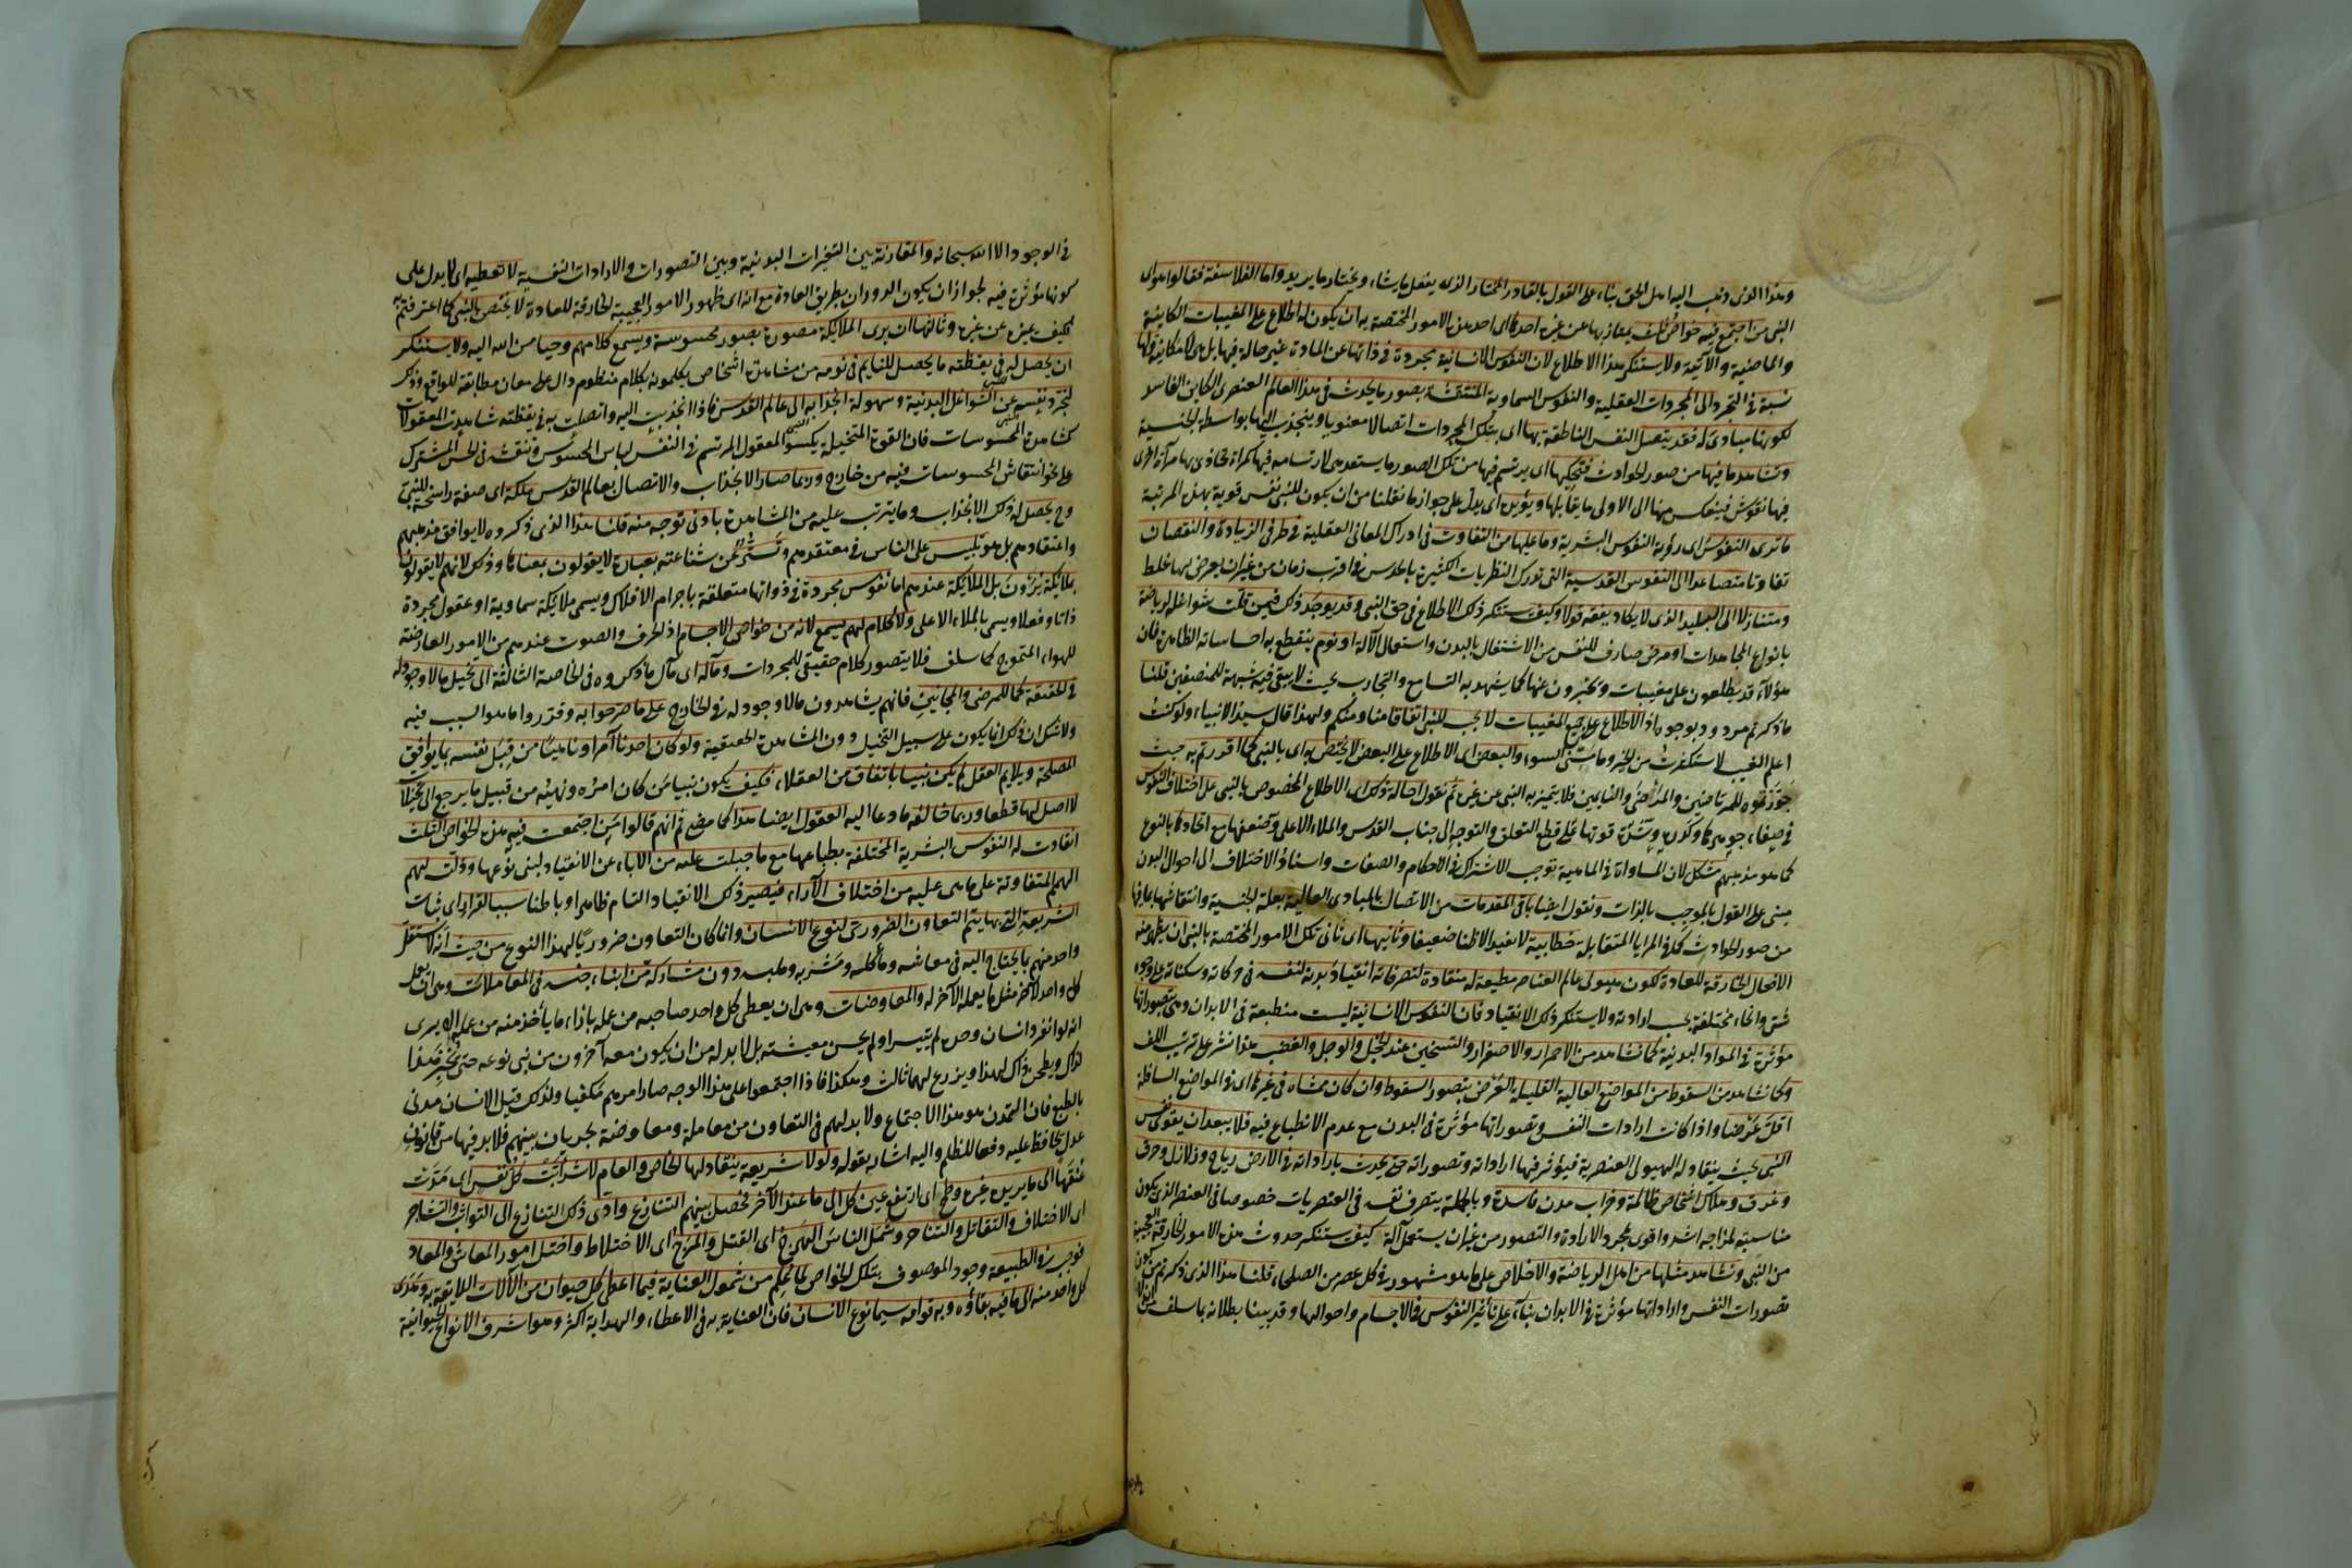 وهذا الذى ذهب اليه اهل الحق بناء على القول بالقادر المختار الذى يفعل ما يشاء ويختار ما يريد واما الفلاسفة فقالوا هو اى
النبى من اجتمع فيه خواص ثلث يمتاز بها عن غيره احدها اى احد هذه الامور المختصة به ان يكون له اطلاع على المغيبات الكاينة
والماضية والآتية ولا يستنكر هذا الاطلاع لان النفوس الانسانية مجردة فى ذاتها عن المادة غير حالة فيها بل هى لامكانية ولها
نسبة فى التجرد الى المجردات العقلية والنفوس السماوية المنتقشة بصور ما يحدث فى هذا العالم العنصرى الكاين الفاسد
لكونها مبادى له فقد يتصل النفس الناطقة بها اى بتلك المجردات اتصالا معنويا وينجذب اليها بواسطة الجنسية
وتشاهد ما فيها من صور الحوادث فتحكيها اى يرتسم فيها من تلك الصور ما يستعد هى لارتسامه فيها كمرآة تحاذى بها مرآة اخرى
فيها نقوش فينعكس منها الى الاولى ما يقابلها ويؤيده اى يدل على جواز ما نقلنا من ان يكون للنبى نفس قوية بهذه المرتبة
ما ترى النفوس اى رؤية النفوس البشرية وما عليها من التفاوت فى ادراك المعانى العقلية فى طرفى الزيادة والنقصان
تفاوتا متصاعدا الى النفوس القدسية التى تدرك النظريات الكثيرة بالحدس فى اقرب زمان من غير ان يعرض لها غلط
ومتنازلا الى البليد الذى لا يكاد يفقه قولا وكيف يستنكر ذلك الاطلاع فى حق النبى وقد يوجد ذلك فيمن قلت شواغله لرياضة
بانواع المجاهدات او مرض صارف للنفس من الاشتغال بالبدن واستعمال الآلة او نوم ينقطع به احساساته الظاهرة فان
هؤلاء قد يطلعون على مغيبات ويخبرون عنها كما يشهد به التسامع والتجارب بحيث لا يبقى فيه شبهة للمنصفين قلنا
ما ذكرتم مردود بوجوه اذ الاطلاع على جميع المغيبات لا يجب للنبى اتفاقا منا ومنكم ولهذا قال سيد الانبياء ولو كنت
اعلم الغيب لاستكثرت من الخير وما مسنى السوء والبعض اى الاطلاع على البعض لا يختص به اى بالنبى كما اقررتم به حيث
جوزتموه للمرتاضين والمرضى والنايمين فلا يتميز به النبى عن غيره ثم نقول احالة ذلك اى الاطلاع المخصوص بالنبى على اختلاف النفوس
فى صفاء جوهرها وكدره وشدة قوتها على قطع التعلق والتوجه الى جناب القدس والملاء الاعلى وضعفها مع اتحادها بالنوع
كما هو مذهبهم مشكل لان المساواة فى الماهية توجب الاشتراك فى الاحكام والصفات واسناد الاختلاف الى احوال البدن
مبنى على القول بالموجب بالذات ونقول ايضا باقى المقدمات من الاتصال بالمبادى العالية بعلة الجنسية وانتقاشها بما فيها
من صور الحوادث كما فى المرايا المتقابلة خطابية لا تفيد الا ظنا ضعيفا وثانيها اى ثانى تلك الامور المختصة بالنبى ان يظهر منه
الافعال الخارقة للعادة لكون هيولى عالم العناصر مطيعة له منقادة لتصرفاته انقياد بدنه لنفسه فى حركاته وسكناته على وجوه
شتى وانحاء مختلفة بحسب ارادته ولا يستنكر ذلك الانقياد فان النفوس الانسانية ليست منطبعة فى الابدان وهى بتصوراتها
مؤثرة فى المواد البدنية كما نشاهد من الاحمرار والاصفرار والتسخين عند الخجل والوجل والغضب هذا نشر على ترتيب اللف
وكما نشاهد من السقوط من المواضع العالية القليلة العرض بتصور السقوط وان كان ممشاه فى غيرها اى فى المواضع السافلة
اقل عرضا واذا كانت ارادات النفس وتصوراتها مؤثرة فى البدن مع عدم الانطباع فيه فلا يبعد ان يقوى نفس
النبى بحيث ينقاد له الهيولى العنصرية فيؤثر فيها اراداته وتصوراته حتى يحدث باراداته فى الارض رياح وزلازل وحرق
وغرق وهلاك اشخاص ظالمة وخراب مدن فاسدة وبالجملة يتصرف نفسه فى العنصريات خصوصا فى العنصر الذى يكون
مناسبته لمزاجه اشد واقوى بمجرد الارادة والتصور من غير ان يستعمل آلة كيف يستنكر حدوث هذه الامور الخارقة العجيبة
من النبى ونشاهد مثلها من اهل الرياضة والاخلاص على ما هو مشهور فى كل عصر من الصلحاء قلنا هذا الذى ذكرتم من كون
تصورات النفس واراداتها مؤثرة فى الابدان بناء على تأثير النفوس فى الاجسام واحوالها وقد بينا بطلانه بما سلف من ان لا مؤثر
فى الوجود الا الله سبحانه والمقارنة بين التغيرات البدنية وبين التصورات والارادات النفسية لا تعطيه اى لا يدل على
كونها مؤثرة فيه لجواز ان يكون الدوران بطريق العادة مع انه اى ظهور الامور العجيبة الخارقة للعادة لا يختص بالنبى كما اعترفتم به
فكيف يميزه عن غيره وثالثها ان يرى الملائكة مصورة بصور محسوسة ويسمع كلامهم وحيا من الله اليه ولا يستنكر
ان يحصل له فى يقظته ما يحصل للنايم فى نومه من مشاهدة اشخاص يكلمونه بكلام منظوم دال على معان مطابقة للواقع وذلك
لتجرد نفسه عن الشواغل البدنية وسهولة انجذابه الى عالم القدس فاذا انجذبت اليه واتصلت به فى يقظته شاهدت المعقولات
كمشاهدة المحسوسات فان القوة المتخيلة يكسو المعقول المرتسم فى النفس لباس المحسوس وتنقشه فى الحس المشترك
على نحو انتقاش المحسوسات فيه من خارج وربما صار الانجذاب والاتصال بعالم القدس ملكة اى صفة راسخة للنبى
وح يحصل له ذلك الانجذاب وما يترتب عليه من المشاهدة بادنى توجه منه قلنا هذا الذى ذكروه لا يوافق مذهبهم
واعتقادهم بل هو تلبيس على الناس فى معتقدهم وتستر عن شناعته بعبارة لا يقولون بمعناها وذلك لانهم لا يقولون
بملائكة يرون بل الملائكة عندهم اما نفوس مجردة فى ذواتها متعلقة باجرام الافلاك ويسمى ملائكة سماوية او عقول مجردة
ذاتا وفعلا ويسمى بالملاء الاعلى ولا كلام لهم يسمع لانه من خواص الاجسام اذ الحرف والصوت عندهم من الامور العارضة
للهواء المتموج كما سلف فلا يتصور كلام حقيقى للمجردات ومآله اى مآل ما ذكروه فى الخاصة الثالثة الى تخيل ما لا وجود له
فى الحقيقة كما للمرضى والمجانين فانهم يشاهدون ما لا وجود له فى الخارج على ما صرحوا به وقرروا ما هو السبب فيه
ولا شك ان ذلك انما يكون على سبيل التخيل دون المشاهدة الحقيقية ولو كان احدنا آمرا وناهيا من قبل نفسه بما يوافق
المصلحة ويلايم العقل لم يكن نبيا باتفاق من العقلاء فكيف يكون نبيا من كان امره ونهيه من قبيل ما يرجع الى تخيلات
لا اصل لها قطعا وربما خالف ما دعا اليه العقول ايضا هذا كما مضى ثم انهم قالوا من اجتمعت فيه هذه الخواص الثلث
انقادت له النفوس البشرية المختلفة بطباعها مع ما جبلت عليه من الاباء عن الانقياد لبنى نوعها وذلت لهم
الهمم المتفاوتة على ما هى عليه من اختلاف الآراء فيصير ذلك الانقياد التام ظاهرا وباطنا سببا لقرار اى ثبات
الشريعة التى بها يتم التعاون الضرورى لنوع الانسان وانما كان التعاون ضروريا لهذا النوع من حيث انه لا يستقل
واحد منهم بما يحتاج اليه فى معاشه ومأكله ومشربه وملبسه دون مشاركة من ابناء جنسه فى المعاملات وهى ان يعمل
كل واحد لآخر مثل ما يعمله الآخر له والمعاوضات وهى ان يعطى كل واحد صاحبه من عمله بازاء ما يأخذ منه من عمله الا يرى
انه لو انفرد انسان وحده لم يتيسر او لم يحسن معيشته بل لا بد له من ان يكون معه آخرون من بنى نوعه حتى يخبز هذا
لذاك ويطحن ذاك لهذا ويزرع لهما ثالث وهكذا فاذا اجتمعوا على هذا الوجه صار امرهم مكفيا ولذلك قيل الانسان مدنى
بالطبع فان التمدن هو هذا الاجتماع ولا بد لهم فى التعاون من معاملة ومعاوضة يجريان بينهم فلا بد فيها من قانون
عدل يحافظ عليه دفعا للظلم واليه اشار بقوله ولولا شريعة ينقاد لها الخاص والعام لاشرأبت كل نفس اى مدت
عنقها الى ما يريده غيره وطمح اى ارتفع عين كل الى ما عند الآخر فحصل بينهم التنازع وادى ذلك التنازع الى التواثب والتشاجر
اى الاختلاف والتقاتل والتناحر وشمل الناس الهرج اى القتل والمرج اى الاختلاط واختل امور المعاش والمعاد
فوجب فى الطبيعة وجود الموصوف بتلك الخواص لما علم من شمول العناية فيما اعطى كل حيوان من الآلات اللايقة به وهدى
كل واحد منه الى ما فيه بقاؤه وبه قوامه سيما نوع الانسان فان العناية به فى الاعطاء والهداية اكثر وهو اشرف الانواع الحيوانية